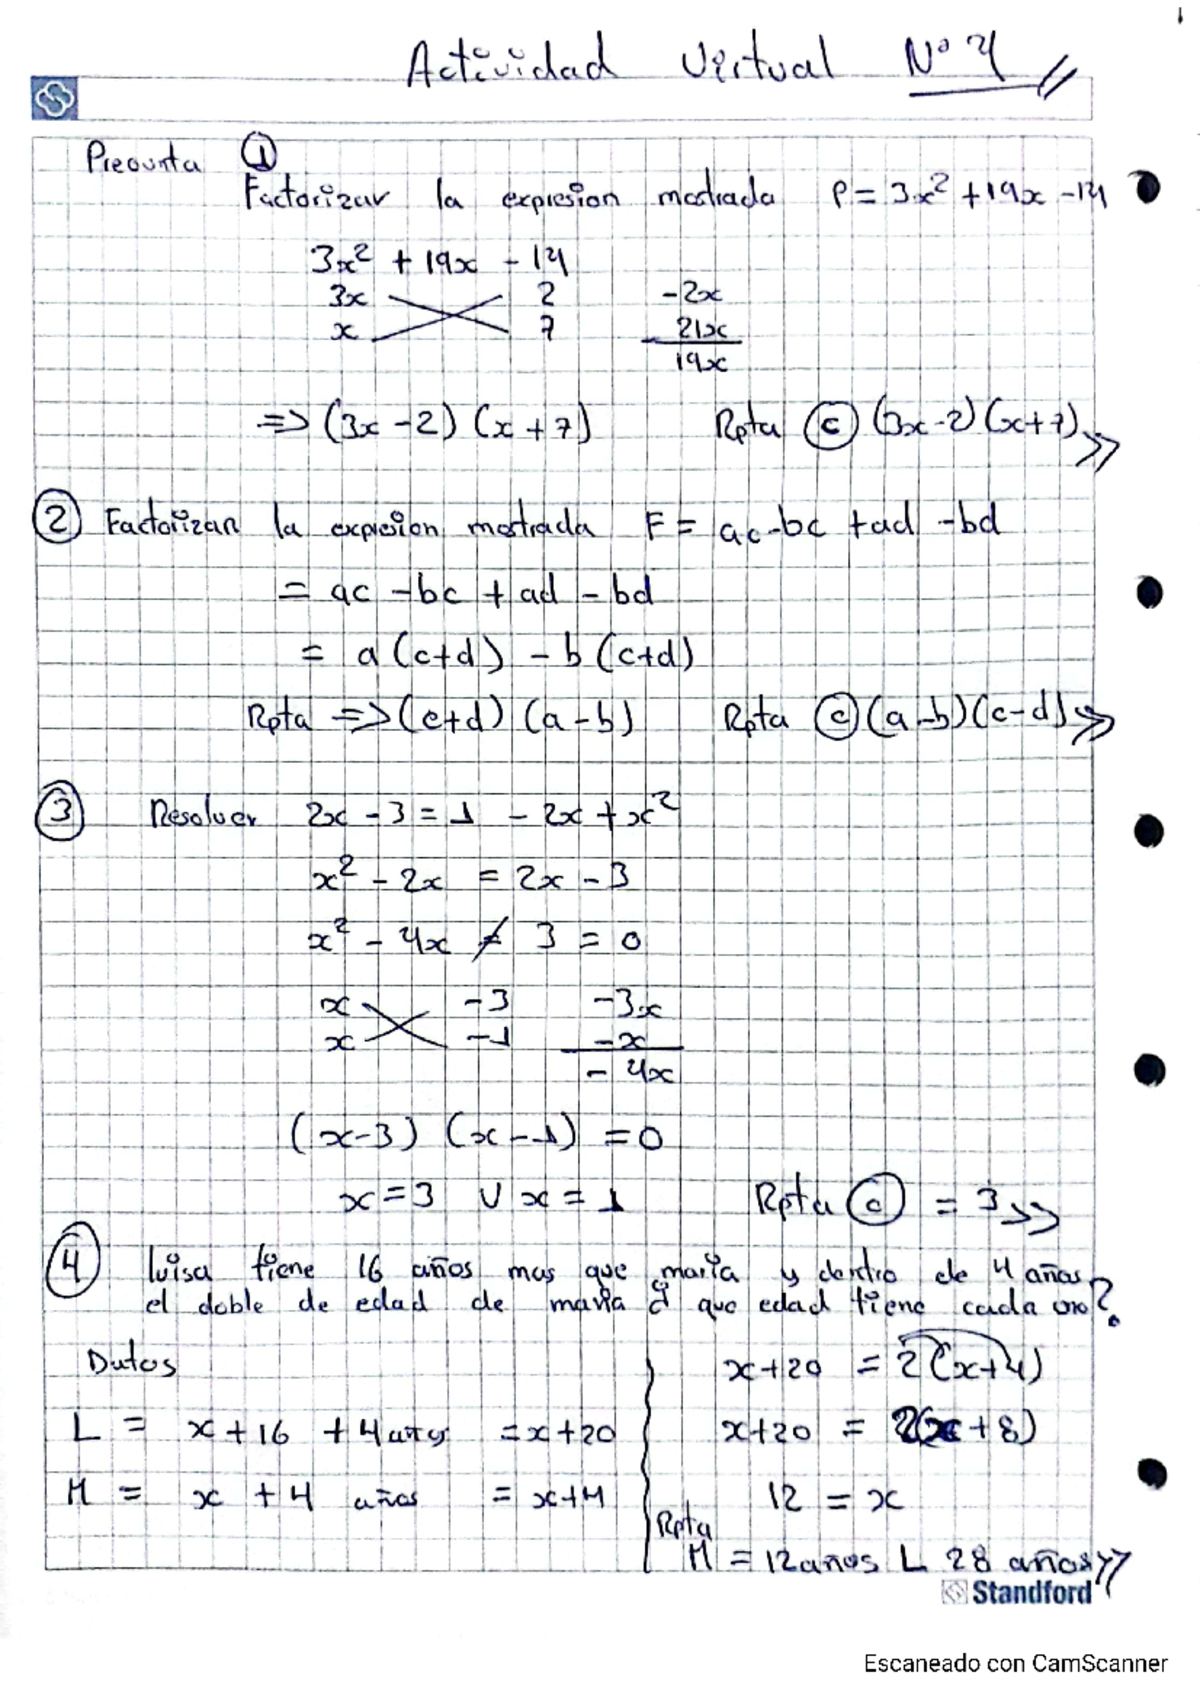 Actividad Virtual Nº 4
Pregunta 1
Factorizar la expresion mostrada P = 3x² + 19x - 14
3x² + 19x - 14
3x 2 -2x
x 7 21x
19x
=> (3x - 2) (x + 7) Rpta c (3x - 2) (x + 7)
2 Factorizan la expresion mostrada F = ac - bc + ad - bd
= ac - bc + ad - bd
= a (c+d) - b (c+d)
Rpta => (c+d) (a - b) Rpta c (a - b) (c - d)
3 Resolver 2x - 3 = 1 - 2x + x²
x² - 2x = 2x - 3
x² - 4x ≠ 3 = 0
x -3 -3x
x -1 -x
- 4x
(x - 3) (x - 1) = 0
x = 3 V x = 1 Rpta c = 3
4 luisa tiene 16 años mas que maria y dentro de 4 años
el doble de edad de maria ¿ que edad tiene cada uno?
Datos x + 20 = 2 (x + 4)
L = x + 16 + 4 años = x + 20 x + 20 = 2(x + 8)
M = x + 4 años = x + 4 12 = x
Rpta
M = 12 años L 28 años
Standford
Escaneado con CamScanner